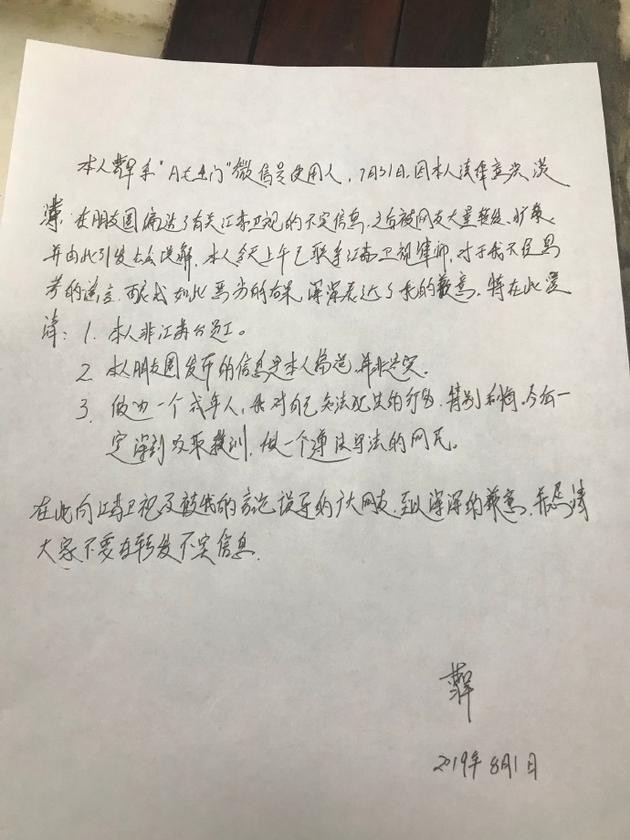 本人系“月七土门”微信号使用人，7月31日，因本人法律意识淡
薄，在朋友圈编造了有关江苏卫视的不实信息，之后被网友大量转发、扩散，
并由此引发社会误解，本人今天上午已联系江苏卫视律师，对于我不经思
考的谣言，酿成如此恶劣的后果，深深表达了我的歉意，特在此澄
清：1. 本人非江苏台员工。
2. 本人朋友圈发布的信息是本人编造，并非是实。
3. 做为一个成年人，我对自己无法犯其的行为，特别后悔，今后一
定深刻吸取教训，做一个遵法守法的网民。
在此向江苏卫视及被我的言论误导的广大网友，至以深深的歉意，并恳请
大家不要在转发不实信息.
2019年8月1日